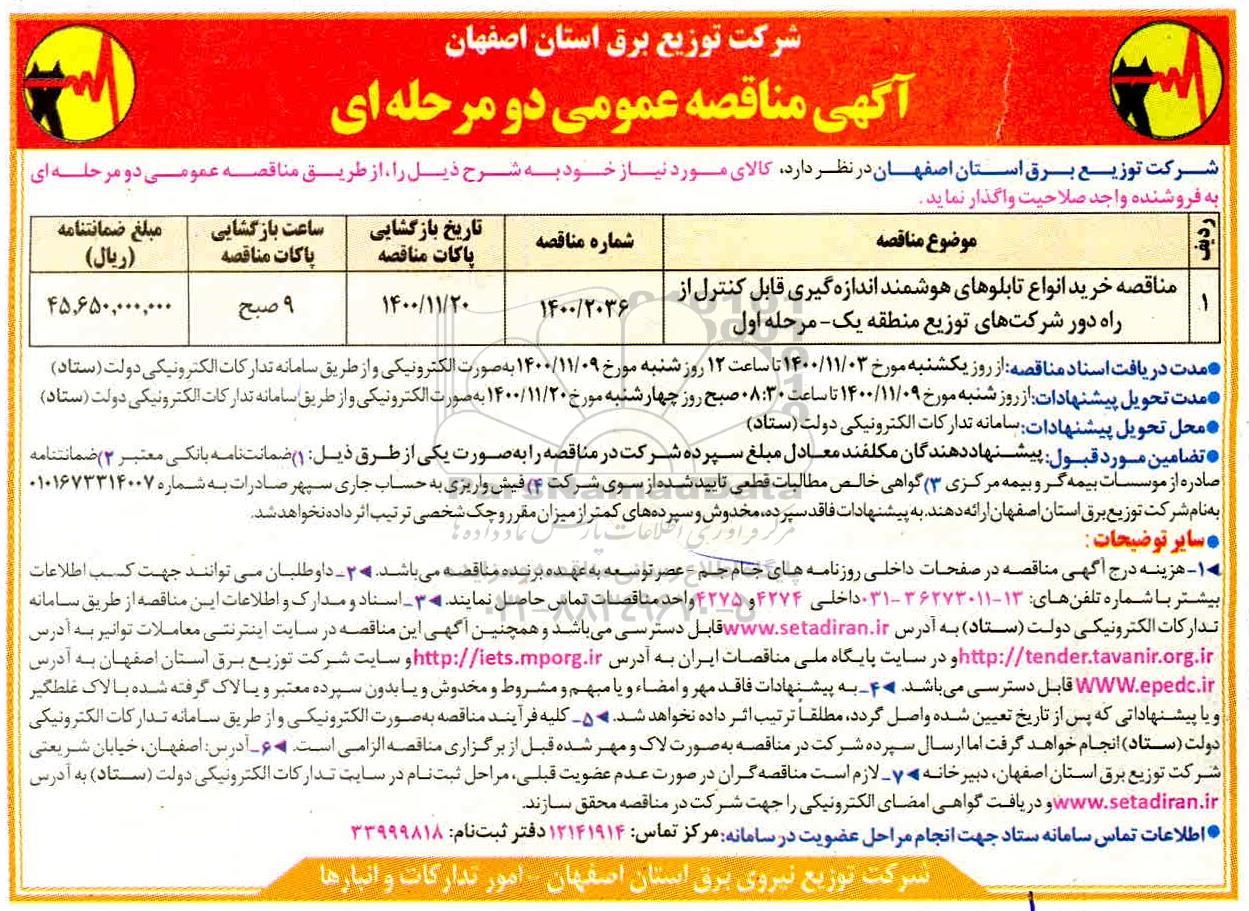 شرکت توزیع برق استان اصفهان
آگهی مناقصه عمومی دو مرحله ای
شرکت توزیع برق استان اصفهان در نظر دارد، کالای مورد نیاز خود به شرح ذیل را، از طریق مناقصه عمومی دو مرحله ای
به فروشنده واجد صلاحیت واگذار نماید.
ردیف موضوع مناقصه شماره مناقصه تاریخ بازگشایی پاکات مناقصه ساعت بازگشایی پاکات مناقصه مبلغ ضمانتنامه (ریال)
۱ مناقصه خرید انواع تابلوهای هوشمند اندازه گیری قابل کنترل از راه دور شرکت‌های توزیع منطقه یک - مرحله اول ۱۴۰۰/۲۰۳۶ ۱۴۰۰/۱۱/۲۰ ۹ صبح ۴۵,۶۵۰,۰۰۰,۰۰۰
●مدت دریافت اسناد مناقصه: از روز یکشنبه مورخ ۱۴۰۰/۱۱/۰۳ تا ساعت ۱۲ روز شنبه مورخ ۱۴۰۰/۱۱/۰۹ به صورت الکترونیکی و از طریق سامانه تدارکات الکترونیکی دولت (ستاد)
●مدت تحویل پیشنهادات: از روز شنبه مورخ ۱۴۰۰/۱۱/۰۹ تا ساعت ۰۸:۳۰ صبح روز چهارشنبه مورخ ۱۴۰۰/۱۱/۲۰ به صورت الکترونیکی و از طریق سامانه تدارکات الکترونیکی دولت (ستاد)
●محل تحویل پیشنهادات: سامانه تدارکات الکترونیکی دولت (ستاد)
●تضامین مورد قبول: پیشنهاددهندگان مکلفند معادل مبلغ سپرده شرکت در مناقصه را به صورت یکی از طرق ذیل: ۱) ضمانت‌نامه بانکی معتبر ۲) ضمانتنامه
صادره از موسسات بیمه‌گر و بیمه مرکزی ۳) گواهی خالص مطالبات قطعی تایید شده از سوی شرکت ۴) فیش واریزی به حساب جاری سپهر صادرات به شماره ۰۱۰۱۶۷۳۳۱۴۰۰۷
به نام شرکت توزیع برق استان اصفهان ارائه دهند. به پیشنهادات فاقد سپرده، مخدوش و سپرده‌های کمتر از میزان مقرر و چک شخصی ترتیب اثر داده نخواهد شد.
●سایر توضیحات:
◄۱- هزینه درج آگهی مناقصه در صفحات داخلی روزنامه های جام جم - عصر توسعه به عهده برنده مناقصه می‌باشد. ◄۲- داوطلبان می توانند جهت کسب اطلاعات
بیشتر با شماره تلفن‌های: ۱۳-۳۶۲۷۳۰۱۱-۰۳۱ داخلی ۴۲۷۴ و ۴۲۷۵ واحد مناقصات تماس حاصل نمایند. ◄۳- اسناد و مدارک و اطلاعات این مناقصه از طریق سامانه
تدارکات الکترونیکی دولت (ستاد) به آدرس www.setadiran.ir قابل دسترسی می‌باشد و همچنین آگهی این مناقصه در سایت اینترنتی معاملات توانیر به آدرس
http://tender.tavanir.org.ir و در سایت پایگاه ملی مناقصات ایران به آدرس http://iets.mporg.ir و سایت شرکت توزیع برق استان اصفهان به آدرس
WWW.epedc.ir قابل دسترسی می‌باشد. ◄۴- به پیشنهادات فاقد مهر و امضاء و یا مبهم و مشروط و مخدوش و یا بدون سپرده معتبر و یا لاک گرفته شده با لاک غلطگیر
و یا پیشنهاداتی که پس از تاریخ تعیین شده واصل گردد، مطلقاً ترتیب اثر داده نخواهد شد. ◄۵- کلیه فرآیند مناقصه به صورت الکترونیکی و از طریق سامانه تدارکات الکترونیکی
دولت (ستاد) انجام خواهد گرفت اما ارسال سپرده شرکت در مناقصه به صورت لاک و مهر شده قبل از برگزاری مناقصه الزامی است. ◄۶- آدرس: اصفهان، خیابان شریعتی
شرکت توزیع برق استان اصفهان، دبیرخانه ◄۷- لازم است مناقصه‌گران در صورت عدم عضویت قبلی، مراحل ثبت‌نام در سایت تدارکات الکترونیکی دولت (ستاد) به آدرس
www.setadiran.ir و دریافت گواهی امضای الکترونیکی را جهت شرکت در مناقصه محقق سازند.
●اطلاعات تماس سامانه ستاد جهت انجام مراحل عضویت در سامانه: مرکز تماس: ۱۲۱۴۱۹۱۴ دفتر ثبت‌نام: ۳۳۹۹۹۸۱۸
شرکت توزیع نیروی برق استان اصفهان - امور تدارکات و انبارها
ParsNamadData
مرکز فرآوری اطلاعات پارس نماد داده ها
۰۲۱-۸۸۳۴۹۶۷۰-۵